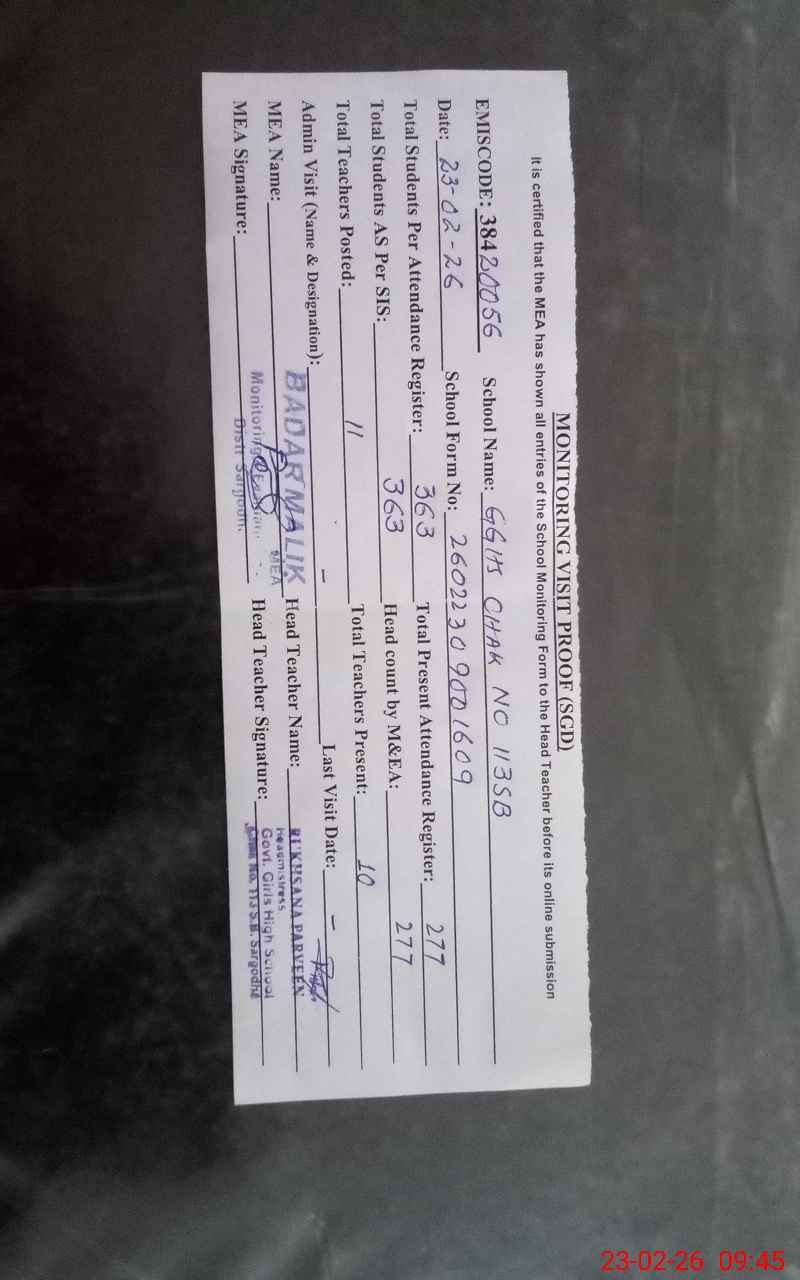 MONITORING VISIT PROOF (SGD)
It is certified that the MEA has shown all entries of the School Monitoring Form to the Head Teacher before its online submission
EMISCODE: 38420056 School Name: GGHS CHAK NO 113SB
Date: 23-02-26 School Form No: 26022309001609
Total Students Per Attendance Register: 363 Total Present Attendance Register: 277
Total Students AS Per SIS: 363 Head count by M&EA: 277
Total Teachers Posted: 11 Total Teachers Present: 10
Admin Visit (Name & Designation): - Last Visit Date: -
MEA Name: BADAR MALIK MEA Head Teacher Name: RUKHSANA PARVEEN
Headmistress
MEA Signature: Monitoring Distt Sargodha Head Teacher Signature: Govt. Girls High School
Chak No. 113 S.B. Sargodha
23-02-26 09:45